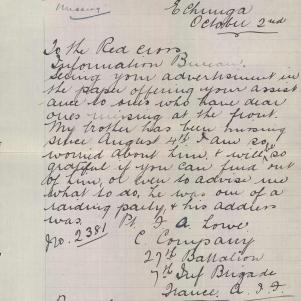 Missing
Echunga
October 2nd
To the Red Cross
Information Bureau.
Seeing your advertisement in
the paper offering your assist
ance to ones who have dear
ones missing at the front.
My brother has been missing
since August 4th I am so
worried about him, & will be so
grateful if you can find out
of him, or even to advise me
what to do, he was one of a
raiding party, & his address
was. Pt. F. A. Lowe.
No. 2381
C. Company
27th Battalion
7th Inf Brigade
France. A. I. F.